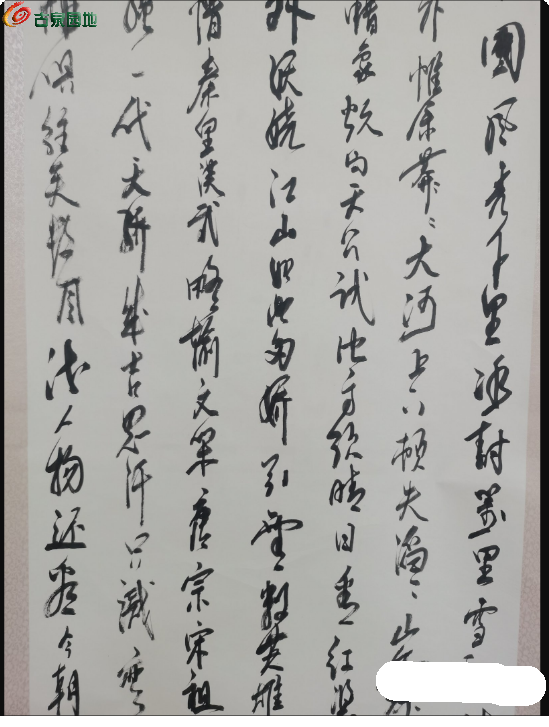 古泉园地
國風光千里冰封萬里雪
惟余莽々大河上下頓失滔々山
蜡象欲与天公試比高须晴日看红装
妖娆江山如此多娇引無数英雄
惜秦皇漢武略输文采唐宗宋祖
一代天骄成吉思汗只識弯
俱往矣数風流人物还看今朝